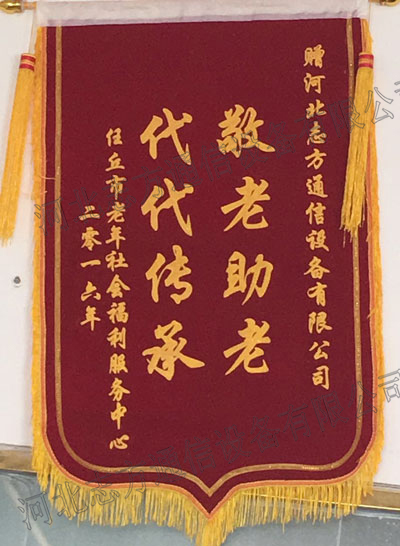 赠河北志方通信设备有限公司
敬老助老
代代传承
任丘市老年社会福利服务中心
二零一六年
河北志方通信设备有限公司
河北志方通信设备有限公司